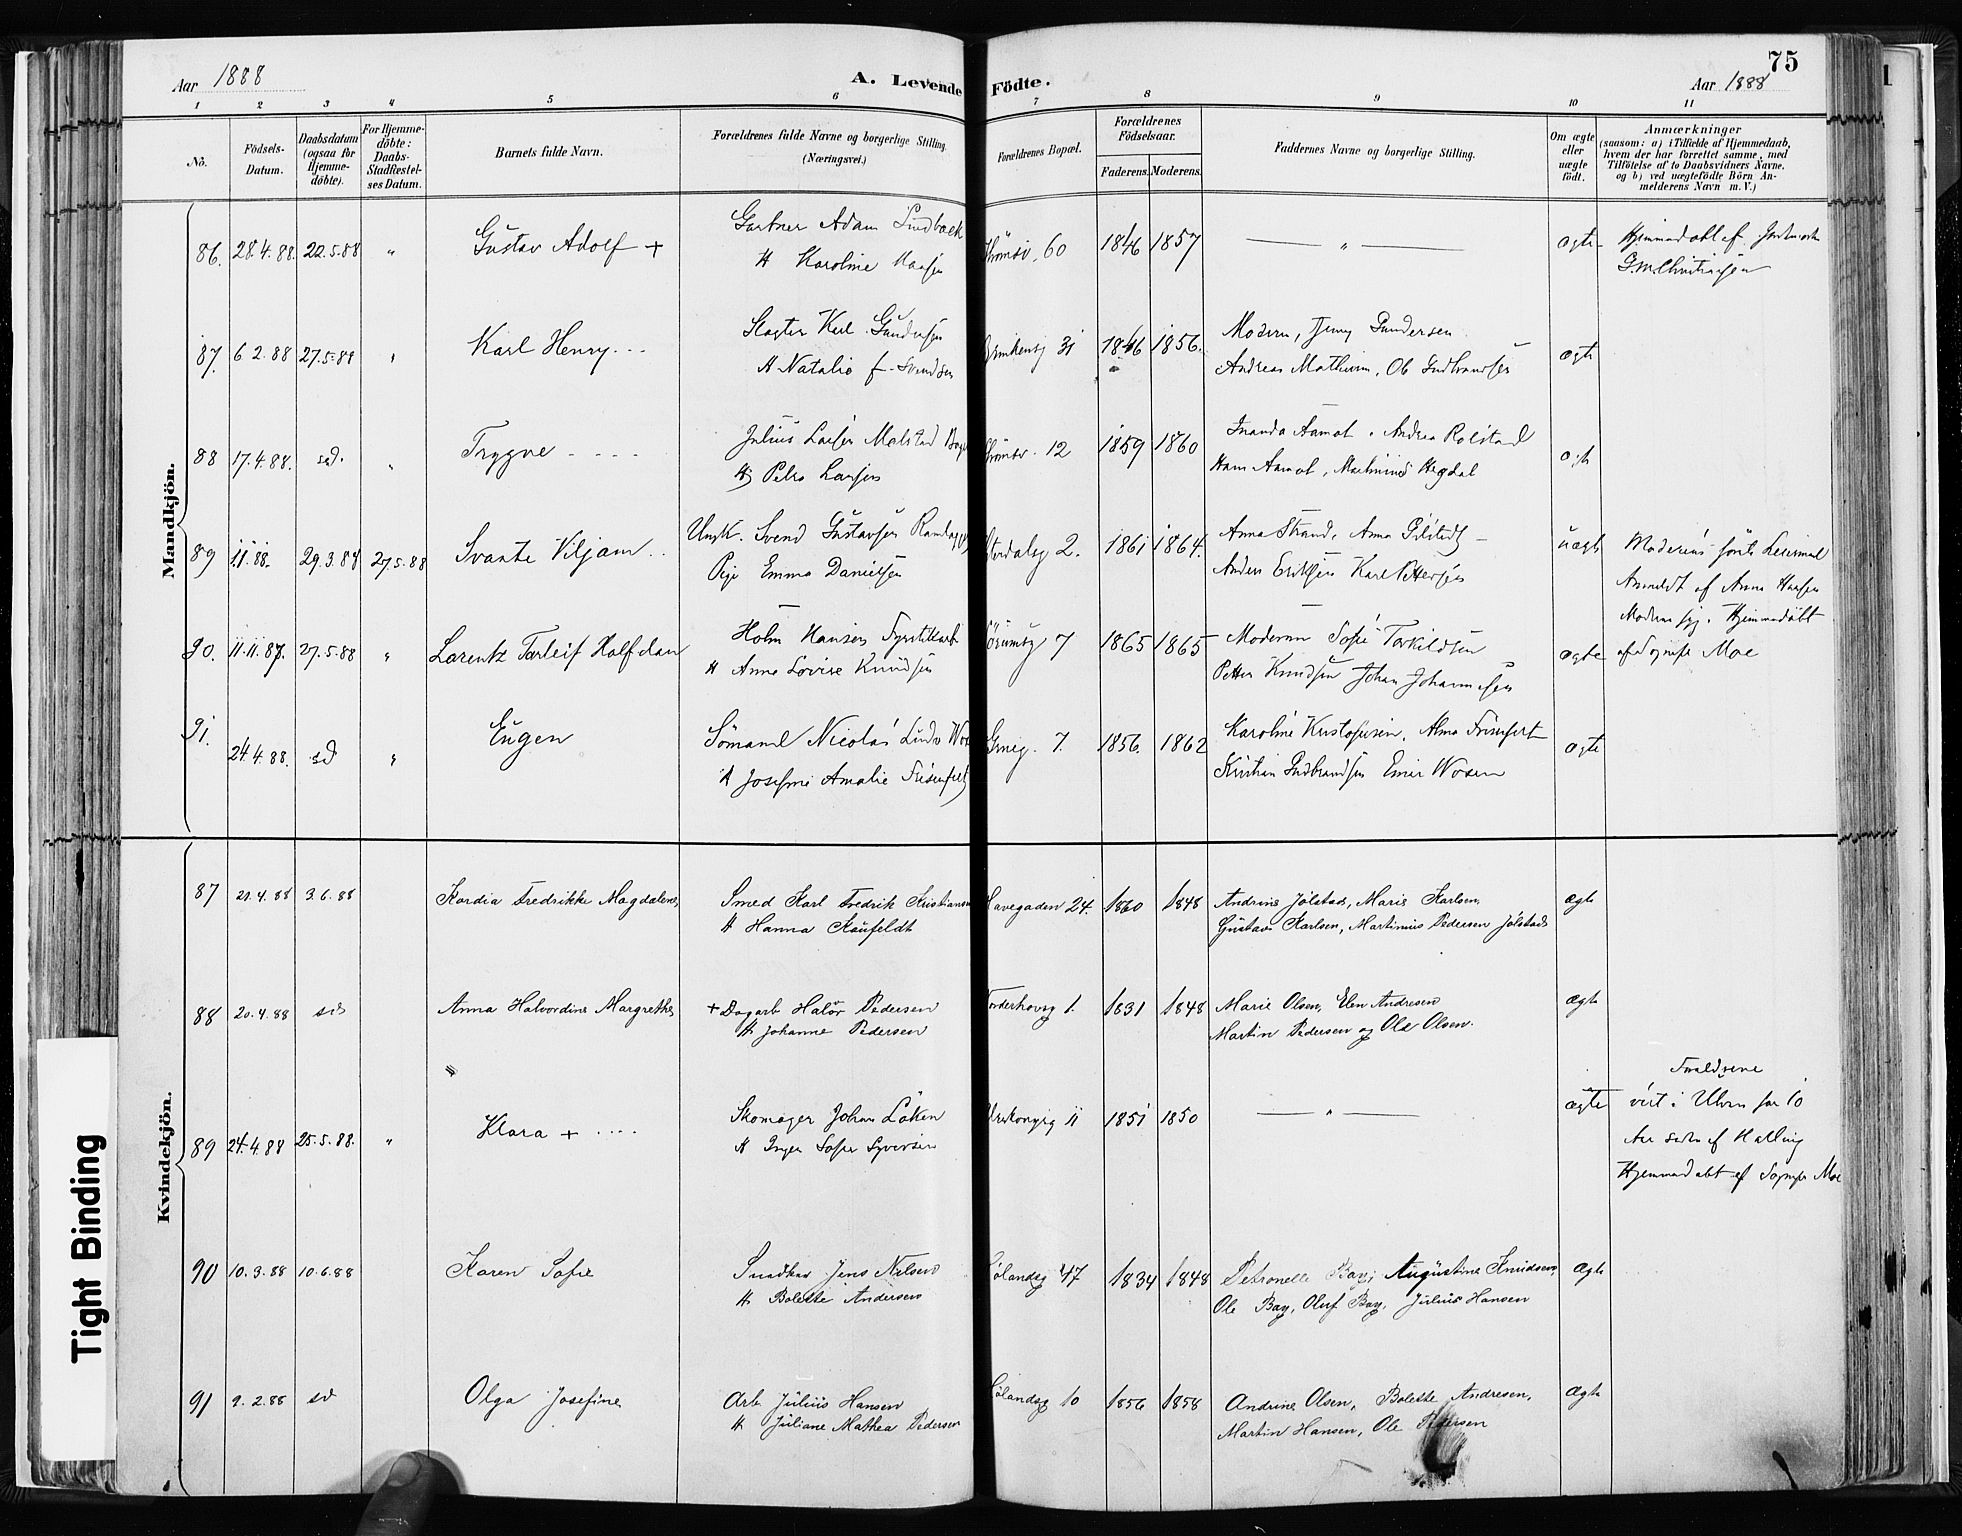 75
Aar 1888
A. Levende Födte.
Aar 1888
1 2 3 4 5 6 7 8 9 10 11
No.
Födsels-Datum.
Daabsdatum (ogsaa for Hjemme-döbte).
For Hjemme-döbte: Daabs-Stadfæstel-ses Datum.
Barnets fulde Navn.
Forældrenes fulde Navne og borgerlige Stilling. (Næringsvei.)
Forældrenes Bopæl.
Forældrenes Födselsaar.
Faderens. Moderens.
Faddernes Navne og borgerlige Stilling.
Om ægte eller uægte födt.
Anmærkninger
(saasom: a) i Tilfælde af Hjemmedaab,
hvem der har forrettet samme, med
Tilföielse af to Daabsvidners Navne,
og b) ved uægtefödte Börn An-
melderens Navn m. V.)
Mandkjön.
86. 28.4.88. 22.5.88 " Gustav Adolf + Gartner Adam Lindbæk 60 1846 1857 — " — ægte Hjemmedøbt af
H Karoline Hansen G.M. Christiansen
87. 6 2.88 27.5.88 " Karl Henry Slagter Karl Gundersen 31 1846 1856. Modern, Jenny Gundersen
H Natalie f. Svendsen Andreas Mathisen, Ole Gulbrandsen ægte
88 17.4.88. sd. " Trygve Julius Larsen Mølstad 12 1859 1860 Aamot, Andrea Rolstad
H Petra Larsen Hans Aamot, Hegdal
89 29.3.88 27.5.88 Svante Viljam Ungk. Svend Gustavsen 2. 1861 1864. Anna Strand, Anna uægte Moderens første Leiermaal
Pige Emma Danielsen Anders Eriksen Karl Pettersen Anmeldt af Anna Hansen
90. 11.11.87. 27.5.88 " Lorentz Torleif Halfdan Holm Hansen Fyrstikarb 7 1865 1865 Moderen Sofie Torkildsen ægte Hjemmedøbt
H Anna Lovise Knudsen Petter Knudsen Johan Johannesen af Sognepr Moe
91. 24.4.88. sd " Eugen Sömand Nicolai Ludv 7. 1856. 1862 Karoline Kristofersen, Alma ægte
H Josefine Amalie Kristian Gulbrandsen Einar
Kvindekjön.
87 3.6.88 Kordia Fredrikke Magdalene, Smed Karl Fredrik Kristiansen Havegaden 24. 1860 1848 Andrine Jølstad, Marie Karlsen, ægte
H Hanna Kaufeldt Gustav Karlsen, Martinius Pedersen Jølstad
88 20.4.88 sd Anna Halvordine Margrethe, + Dagarb Halvor Pedersen Norderhovsg 1. 1831 1848 Marie Olsen, Elen Andresen ægte
H Johanne Pedersen Martin Pedersen og Ole Olsen.
"
Forældrene
89 24.4.88 25.5.88. " Klara + Skomager Johan Løken 11 1851 1850 — " — ægte vist i Ulven for 10
H Inger Sofie Syversen Aar siden af Halling
Hjemmedøbt af Sognepr Moe
90 10.3.88 10.6.88 Karen Sofie Snedker Jens Nilsen Hølandsg 47 1834 1848 Petronelle Bay, Augustine Knudsen, ægte
H Bolette Andersen Ole Bay, Oluf Bay, Julius Hansen
91 9.2.88 sd Olga Josefine Arb Julius Hansen Hølandsg 10 1856 1858 Andrine Olsen, Bolette Andresen, ægte
H Juliane Mathea Pedersen Martin Hansen, Ole Pedersen
Tight Binding